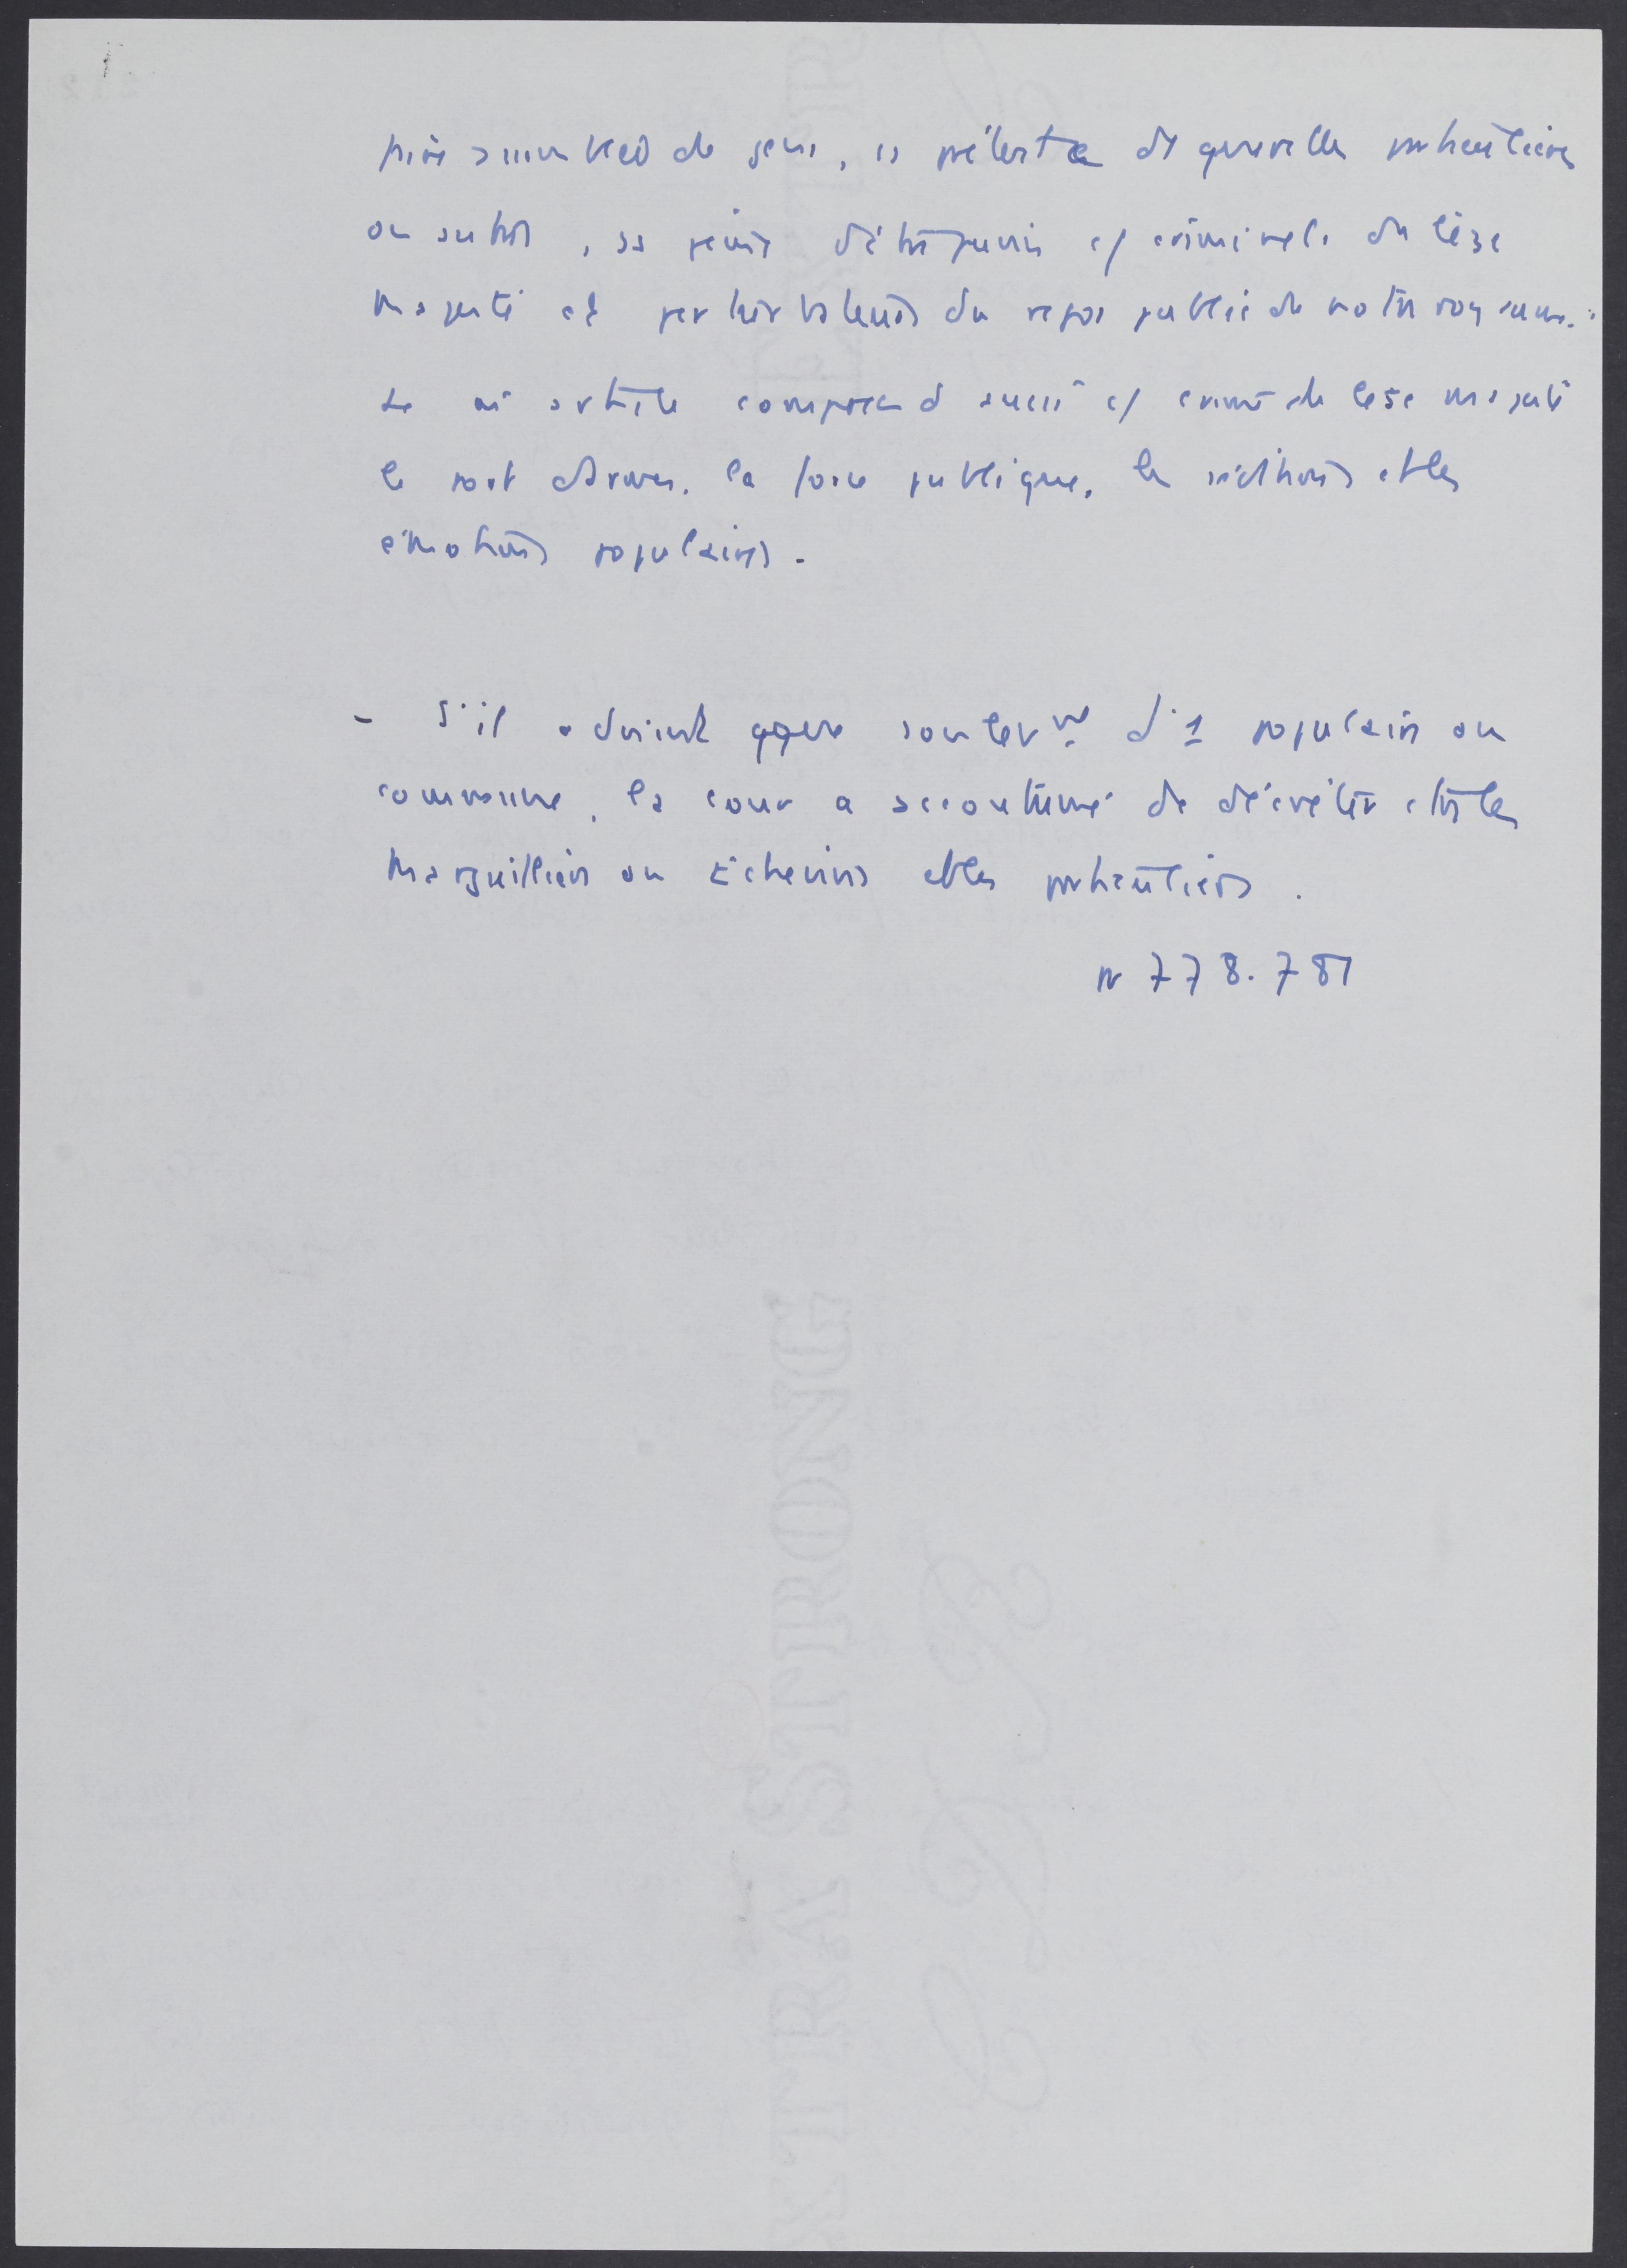 faire assemblées de gens, ss prétexte de querelles particulières
ou autres, ss peine d'être punis c/ criminels de lèse
Majesté et perturbateurs du repos public de notre royaume."
Le m̂ article comprend aussi c/ crime de lèse majesté
le port d'armes, la force publique, les séditions et les
émotions populaires.
- S'il advient qque soulevnt d'1 populaire ou
commune, la cour a accoutumé de décréter ctre les
Marguilliers ou Echevins et les particuliers.
p 778.781